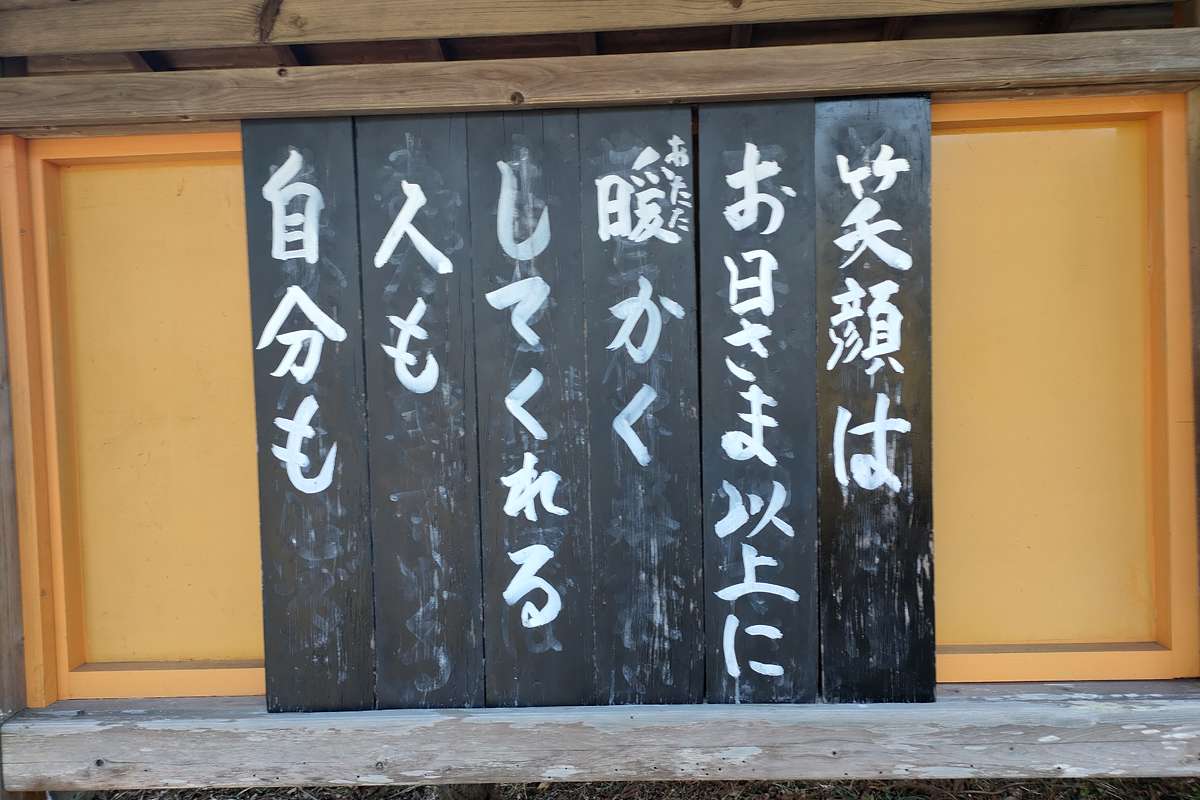 笑顔は
お日さま以上に
暖かく
あたた
してくれる
人も
自分も